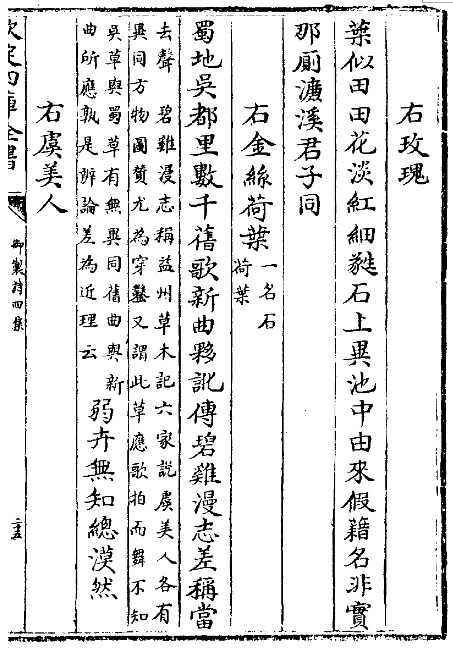 右玫瑰
葉似田田花淡紅細蕤石上異池中由來假藉名非實
那厠濂溪君子同
右金絲荷葉 一名石
荷葉
蜀地吳都里數千舊歌新曲夥訛傳碧雞漫志差稱當
去聲 碧雞漫志稱益州草木記六家說虞美人各有
異同方物圖贊尤為穿鑿又謂此草應歌拍而舞不知
吳草與蜀草有無異同舊曲與新
曲所應孰是辨論差為近理云 弱卉無知總漠然
右虞美人
欽定四庫全書 御製詩四集